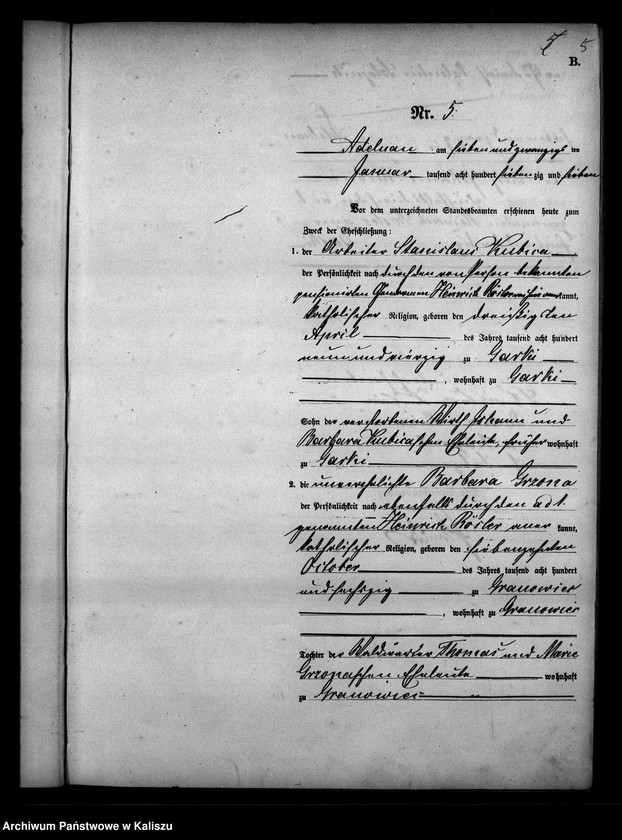 5
B.
Nr. 5.
Adelnau am sieben und zwanzigsten
Januar tausend acht hundert siebenzig und sieben
Vor dem unterzeichneten Standesbeamten erschienen heute zum
Zweck der Eheschließung:
1. der Arbeiter Stanislaus Kubica
der Persönlichkeit nach durch den von Person bekannten
pensionirten Gendarmen Heinrich Rösler kannt,
katholischer Religion, geboren den dreißigsten
April des Jahres tausend acht hundert
neun und vierzig zu Garki
, wohnhaft zu Garki
Sohn der verstorbenen Wirth Johann und
Barbara Kubicaschen Eheleute, früher wohnhaft
zu Garki
2. die unverehelichte Barbara Grzona
der Persönlichkeit nach ebenfalls durch den ad 1.
genannten Heinrich Rösler aner kannt,
katholischer Religion, geboren den siebenzehnten
October des Jahres tausend acht hundert
und sechszig zu Granowiec
, wohnhaft zu Granowiec
Tochter der Waldwärter Thomas und Marie
Grzonaschen Eheleute wohnhaft
zu Granowiec
Archiwum Państwowe w Kaliszu